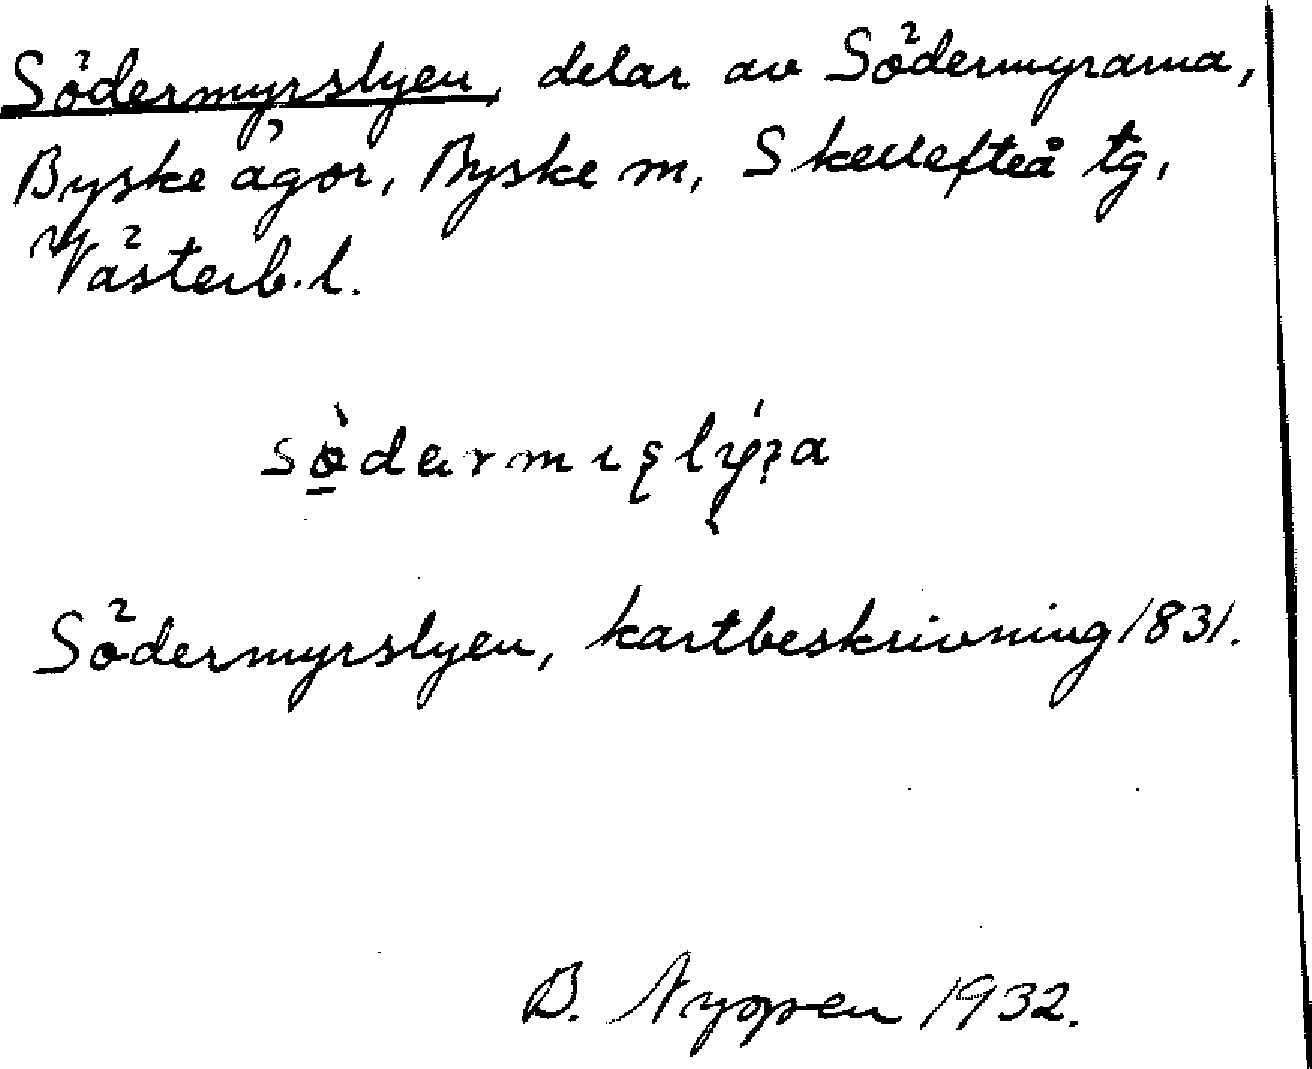 Södermyrslyen, delar av Södermyrarna,
Byske ägor, Byske m, Skellefteå tg,
Västerb. l.
Södermyrslyen, kartbeskrivning 1831.
B. Nyppen 1932.